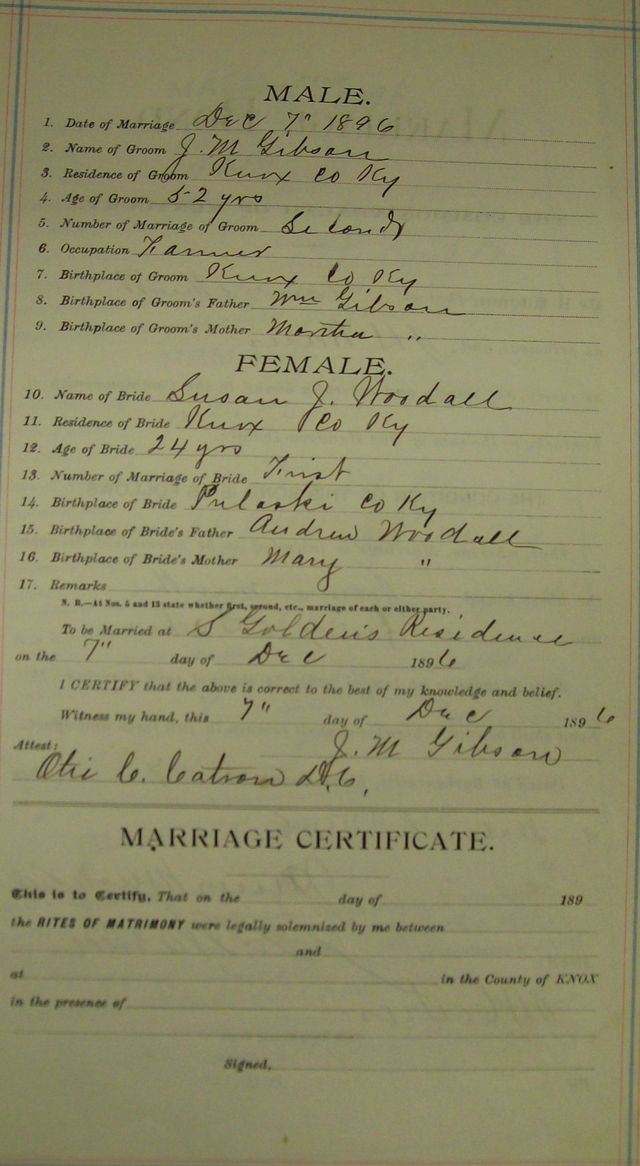 MALE.
1. Date of Marriage Dec 7" 1896
2. Name of Groom J. M Gibson
3. Residence of Groom Knox Co Ky
4. Age of Groom 52 yrs
5. Number of Marriage of Groom Second
6. Occupation Farmer
7. Birthplace of Groom Knox Co Ky
8. Birthplace of Groom's Father Wm Gibson
9. Birthplace of Groom's Mother Martha "
FEMALE.
10. Name of Bride Susan J. Woodall
11. Residence of Bride Knox Co Ky
12. Age of Bride 24 yrs
13. Number of Marriage of Bride First
14. Birthplace of Bride Pulaski Co Ky
15. Birthplace of Bride's Father Andrew Woodall
16. Birthplace of Bride's Mother Mary "
17. Remarks
N. B.—At Nos. 5 and 13 state whether first, second, etc., marriage of each or either party.
To be Married at S Golden's Residence
on the 7" day of Dec 1896
I CERTIFY that the above is correct to the best of my knowledge and belief.
Witness my hand, this 7" day of Dec 1896
J. M Gibson
Attest:
Otis C. Catron D.C.
MARRIAGE CERTIFICATE.
This is to Certify, That on the day of 189
the RITES OF MATRIMONY were legally solemnized by me between
and
at in the County of KNOX
in the presence of
Signed,